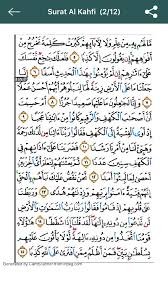 Surat Al Kahfi (2/12)
مَّا لَهُم بِهِۦ مِنْ عِلْمٍ وَلَا لِـَٔابَآئِهِمْ كَبُرَتْ كَلِمَةً تَخْرُجُ مِنْ
أَفْوَٰهِهِمْ إِن يَقُولُونَ إِلَّا كَذِبًا ٥ فَلَعَلَّكَ بَٰخِعٌ نَّفْسَكَ
عَلَىٰٓ ءَاثَٰرِهِمْ إِن لَّمْ يُؤْمِنُوا۟ بِهَٰذَا ٱلْحَدِيثِ أَسَفًا ٦ إِنَّا جَعَلْنَا
مَا عَلَى ٱلْأَرْضِ زِينَةً لَّهَا لِنَبْلُوَهُمْ أَيُّهُمْ أَحْسَنُ عَمَلًا ٧
وَإِنَّا لَجَٰعِلُونَ مَا عَلَيْهَا صَعِيدًا جُرُزًا ٨ أَمْ حَسِبْتَ أَنَّ أَصْحَٰبَ
ٱلْكَهْفِ وَٱلرَّقِيمِ كَانُوا۟ مِنْ ءَايَٰتِنَا عَجَبًا ٩ إِذْ أَوَى ٱلْفِتْيَةُ إِلَى
ٱلْكَهْفِ فَقَالُوا۟ رَبَّنَآ ءَاتِنَا مِن لَّدُنكَ رَحْمَةً وَهَيِّئْ لَنَا مِنْ أَمْرِنَا
رَشَدًا ١٠ فَضَرَبْنَا عَلَىٰٓ ءَاذَانِهِمْ فِى ٱلْكَهْفِ سِنِينَ عَدَدًا ١١
ثُمَّ بَعَثْنَٰهُمْ لِنَعْلَمَ أَىُّ ٱلْحِزْبَيْنِ أَحْصَىٰ لِمَا لَبِثُوٓا۟ أَمَدًا ١٢
نَّحْنُ نَقُصُّ عَلَيْكَ نَبَأَهُم بِٱلْحَقِّ إِنَّهُمْ فِتْيَةٌ ءَامَنُوا۟ بِرَبِّهِمْ
وَزِدْنَٰهُمْ هُدًى ١٣ وَرَبَطْنَا عَلَىٰ قُلُوبِهِمْ إِذْ قَامُوا۟ فَقَالُوا۟
رَبُّنَا رَبُّ ٱلسَّمَٰوَٰتِ وَٱلْأَرْضِ لَن نَّدْعُوَا۟ مِن دُونِهِۦٓ إِلَٰهًا
لَّقَدْ قُلْنَآ إِذًا شَطَطًا ١٤ هَٰٓؤُلَآءِ قَوْمُنَا ٱتَّخَذُوا۟
مِن دُونِهِۦٓ ءَالِهَةً لَّوْلَا يَأْتُونَ عَلَيْهِم